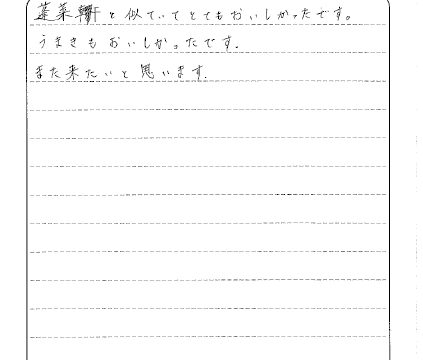 蓬莱軒と似ていてとてもおいしかったです。
うまきもおいしかったです.
また来たいと思います.